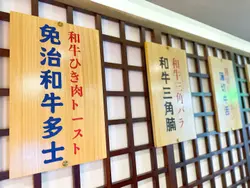 和牛ひき肉トースト
免治和牛多士
和牛三角バラ
和牛三角腩